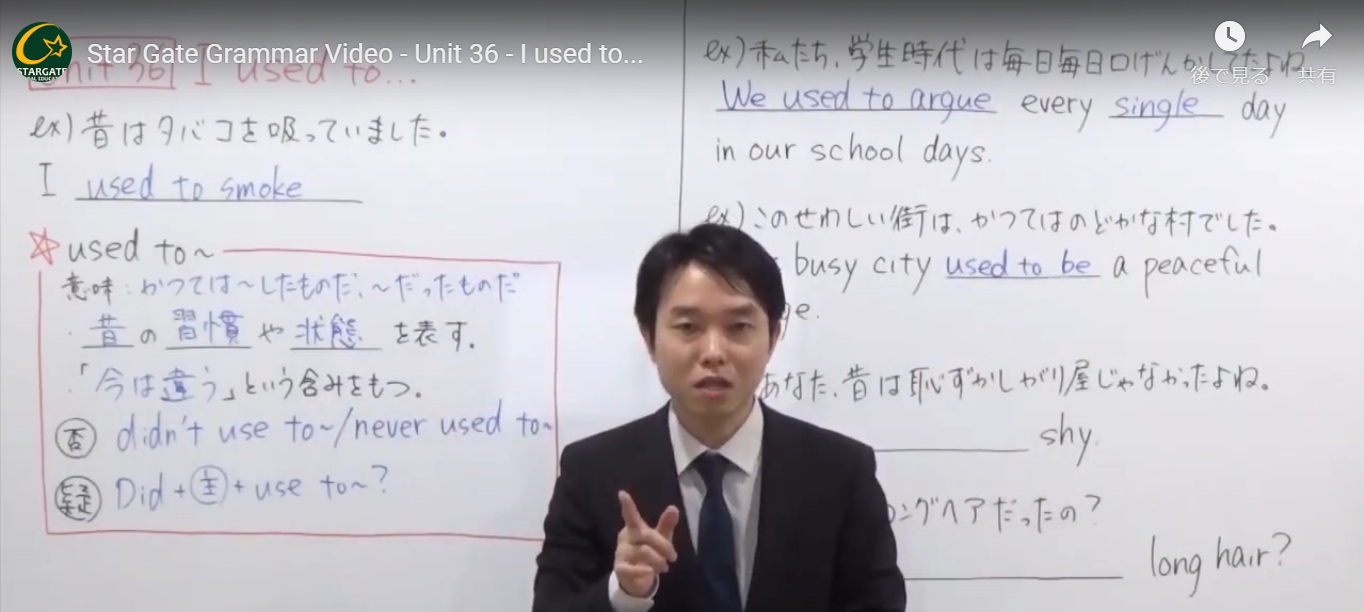 Star Gate Grammar Video - Unit 36 - I used to...
STARGATE
後で見る
共有
Unit 36 I used to...
ex) 昔はタバコを吸っていました。
I used to smoke
☆ used to~
意味:かつては~したものだ、~だったものだ
・昔の習慣や状態を表す。
・「今は違う」という含みをもつ。
否 didn't use to~/never used to~
疑 Did+主+use to~?
ex) 私たち、学生時代は毎日毎日口げんかしてたよね
We used to argue every single day
in our school days.
ex) このせわしい街は、かつてはのどかな村でした。
busy city used to be a peaceful
ge.
あなた、昔は恥ずかしがり屋じゃなかったよね。
shy.
ロングヘアだったの?
long hair?